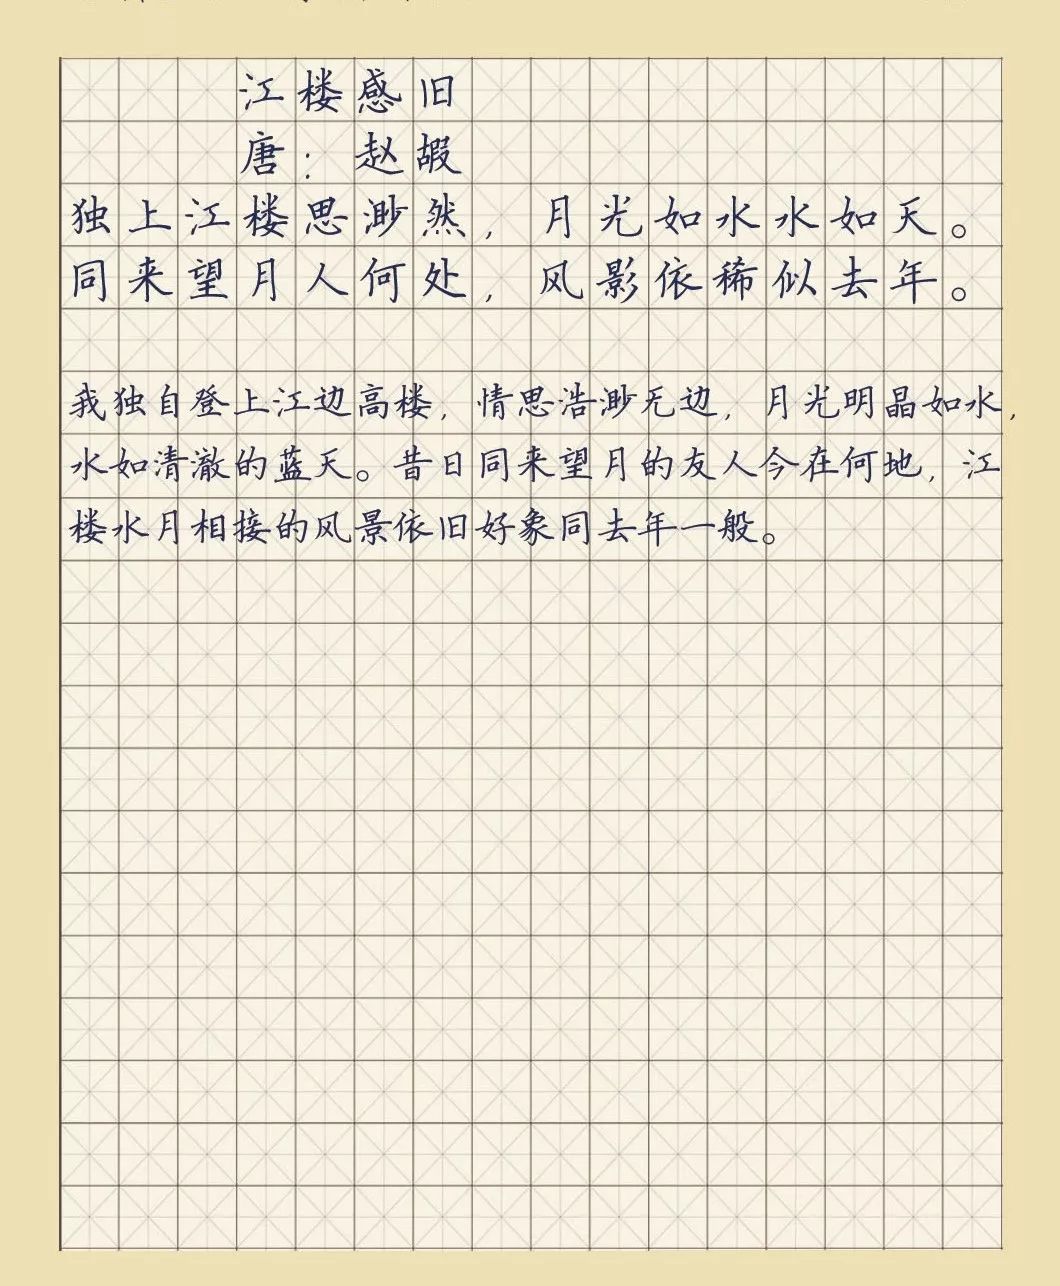 江楼感旧
唐：赵嘏
独上江楼思渺然，月光如水水如天。
同来望月人何处，风影依稀似去年。
我独自登上江边高楼，情思浩渺无边，月光明晶如水，
水如清澈的蓝天。昔日同来望月的友人今在何地，江
楼水月相接的风景依旧好象同去年一般。